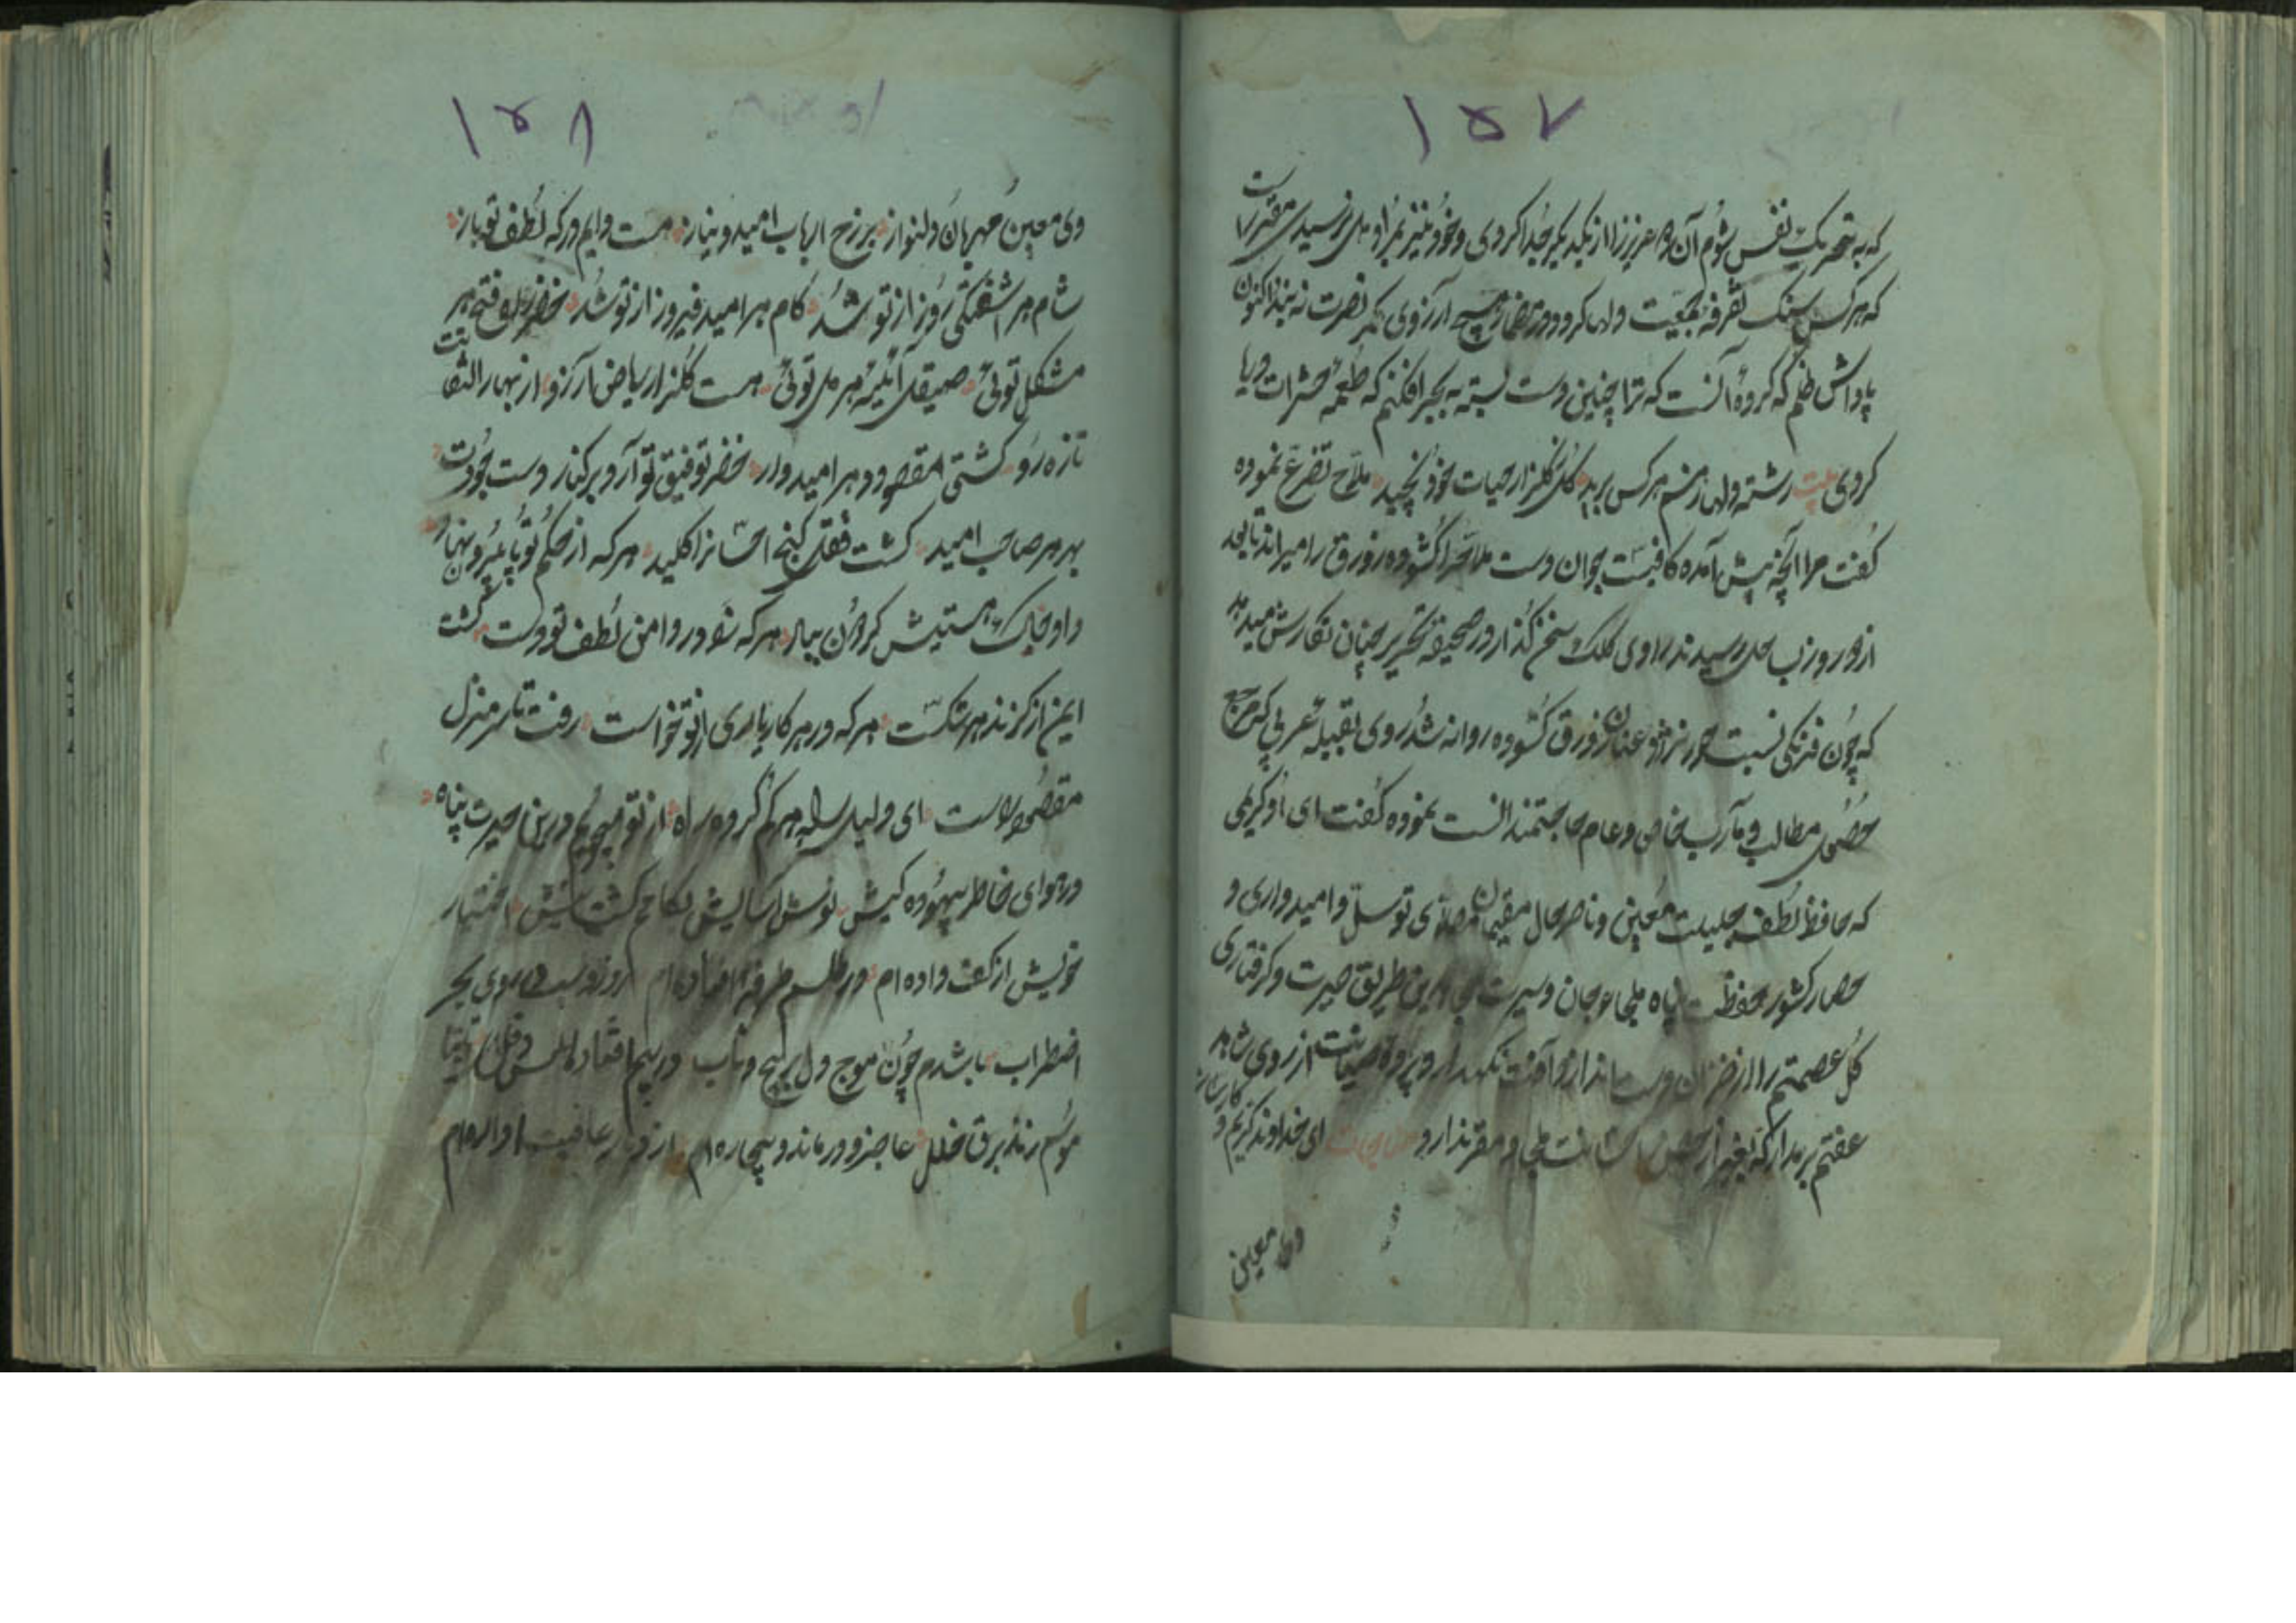 ۱۵۷
که به تحریک نفس شوم آن دو عزیز را از یکدیگر جدا کردی و خود نیز بمراد دل نرسیدی مقررست
که هرکس سنگ تفرقه بجمعیت دلها کرد و در قضا هیچ آرزوی بکر نصرت نه بیند اکنون
پاداش ظلم که کردهٔ آنست که ترا چنین دست بسته به بحر افکنم که طعمه حشرات دریا
کردی بیت رشته دلها ز هم هر کس برید گل ز گلزار حیات خود نچید ملاح تضرع نموده
گفت مرا آنچه پیش آمده کافیست جوان دست ملاح را کشوده زورق را میراند تا بعد
از دو روز بساحل رسیدند راوی کلک سخن گذار در صحیفه تحریر چنان نگارش میدهد
که چون فرنگی نسبت حور نژاد عنان زورق کشوده روانه شد روی بقبله تعریی که مرجع
حصول مطالب و مآرب خاص و عام حاجتمند انست نموده گفت ای اوکریمی
که حافظ لطف جلیلت معین و ناصر حال مقیمان مصلای توسل و امیدواری و
حصار کشور حفظت پناه ملجاء جان وسیرت این طریق حیرت و گرفتاری
گل عصمتم را از خزان دست انداز و آفت نگهدار و پرده صیانت از روی شاهد
عفتم بر مدار که بغیر از ملجا و مقر ندارد مناجات ای خداوند کریم و کارساز
وی معین
۱۵۸
وی معین مهربان دلنواز بر رخ ارباب امید و نیاز هست دایم در که لطف تو باز
شام هر آشفتگی روز از تو شد کام هر امید فیروز از تو شد خضر راه فتح هر
مشکل توئی صیقل آئینه هر دل توئی هست گلزار ریاض آرزو از بهار التفاتت
تازه رو کشتی مقصود هر امیدوار خضر توفیق تو آرد بر کنار دست جودت
بهر هر صاحب امید گشت قفل گنج احسانرا کلید هر که از حکم تو پا بیرون نهاد
داد خاک هستیش گردون بباد هر که شد در دامن لطف تو دست گشت
ایمن از گزند هر شکست هر که در هر کار یاری از تو خواست رفت تا سر منزل
مقصود راست ای دلیل سالم هر گم کرده راه از تو میجویم درین حیرت پناه
در هوای خاطر بیهوده کیش نوش آسایش بکامم گشت نیش اختیار
خویش از کف داده ام در طلسم طرفه افتاده ام روز و شب در بحر
اضطراب باشدم چون موج دل پر پیچ و تاب در بیم افتاده
موسم زند برق خلل عاجز و درمانده و بیچاره ام از دیار عافیت آواره ام